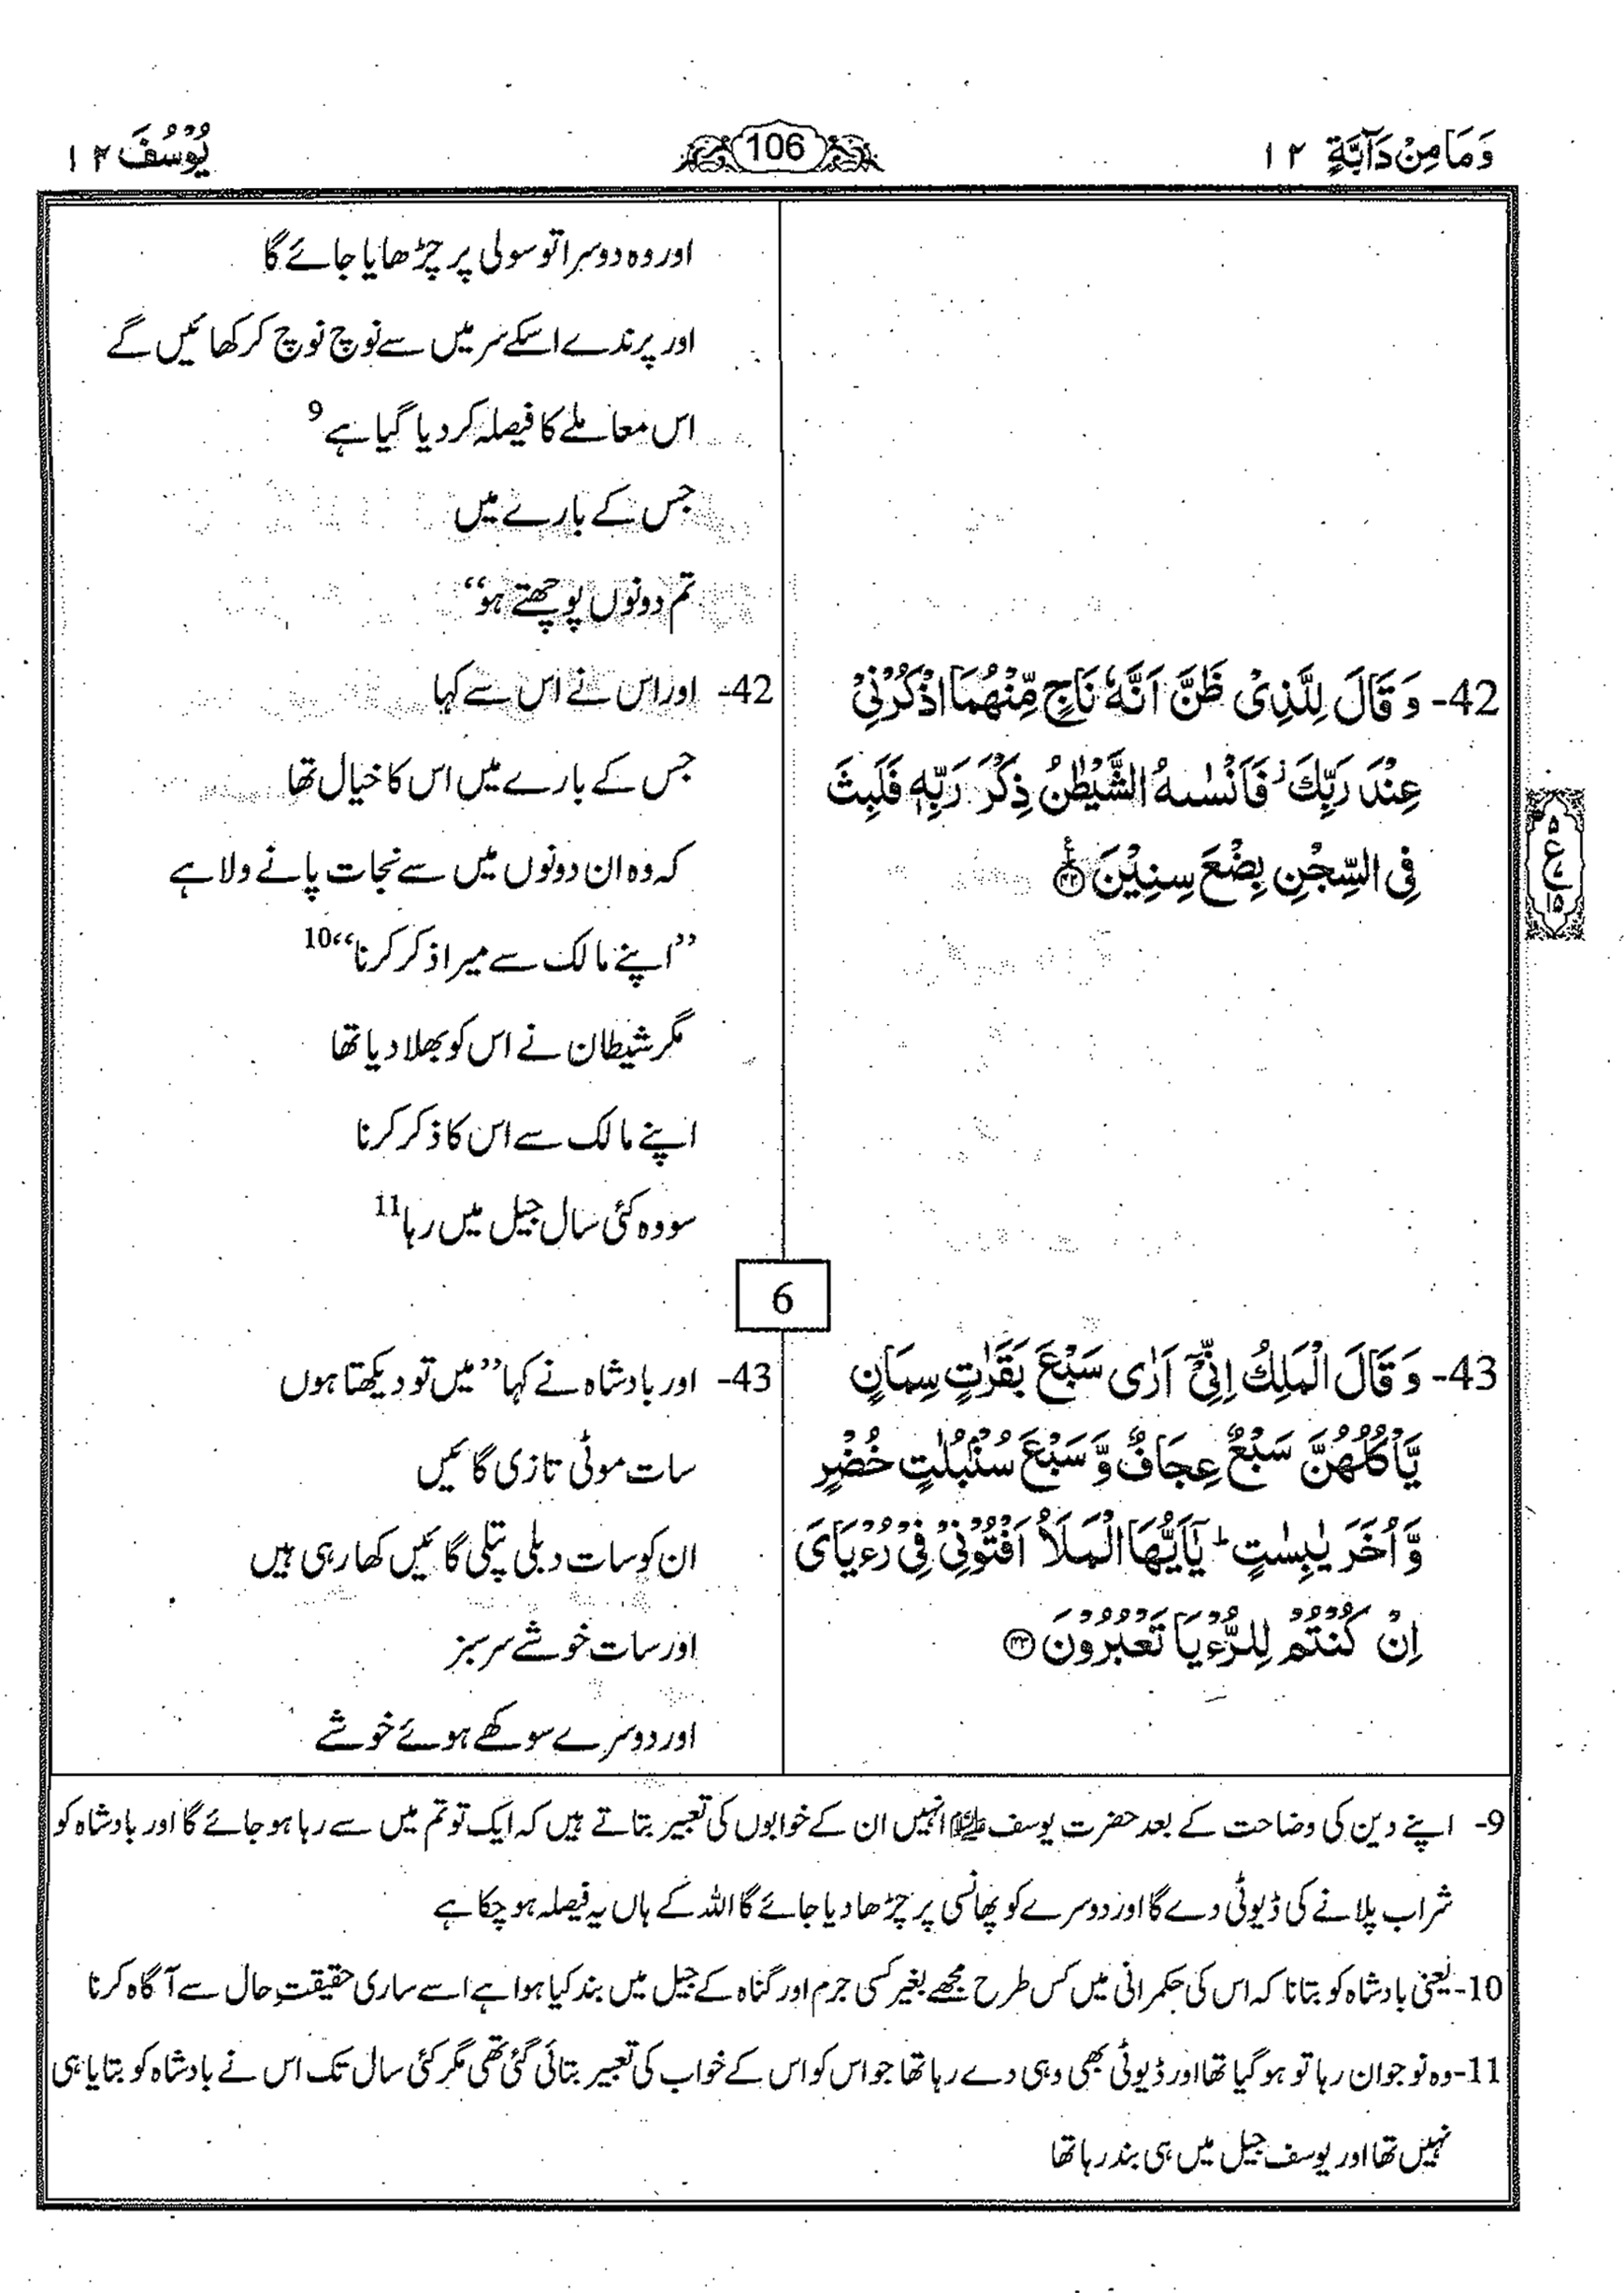 وَمَا مِنْ دَآبَّةٍ ۱۲
106
یُوْسُفَ ۱۲
اور وہ دوسرا تو سولی پر چڑھایا جائے گا
اور پرندے اسکے سر میں سے نوچ نوچ کر کھائیں گے
اس معاملے کا فیصلہ کر دیا گیا ہے 9
جس کے بارے میں
تم دونوں پوچھتے ہو“
42- وَ قَالَ لِلَّذِیْ ظَنَّ اَنَّهٗ نَاجٍ مِّنْهُمَا اذْكُرْنِیْ
عِنْدَ رَبِّكَ ؗ فَاَنْسٰىهُ الشَّیْطٰنُ ذِكْرَ رَبِّهٖ فَلَبِثَ
فِی السِّجْنِ بِضْعَ سِنِیْنَ ؑ ۴۲
42- اور اس نے اس سے کہا
جس کے بارے میں اس کا خیال تھا
کہ وہ ان دونوں میں سے نجات پانے ولا ہے
”اپنے مالک سے میرا ذکر کرنا“ 10
مگر شیطان نے اس کو بھلا دیا تھا
اپنے مالک سے اس کا ذکر کرنا
سو وہ کئی سال جیل میں رہا 11
۵
ع
۱۵
6
43- وَ قَالَ الْمَلِكُ اِنِّیْۤ اَرٰى سَبْعَ بَقَرٰتٍ سِمَانٍ
یَّاْكُلُهُنَّ سَبْعٌ عِجَافٌ وَّ سَبْعَ سُنْۢبُلٰتٍ خُضْرٍ
وَّ اُخَرَ یٰبِسٰتٍ ؕ یٰۤاَیُّهَا الْمَلَاُ اَفْتُوْنِیْ فِیْ رُءْیَایَ
اِنْ كُنْتُمْ لِلرُّءْیَا تَعْبُرُوْنَ ۴۳
43- اور بادشاہ نے کہا ”میں تو دیکھتا ہوں
سات موٹی تازی گائیں
ان کو سات دبلی پتلی گائیں کھا رہی ہیں
اور سات خوشے سرسبز
اور دوسرے سوکھے ہوئے خوشے
9- اپنے دین کی وضاحت کے بعد حضرت یوسف علیہ السلام انہیں ان کے خوابوں کی تعبیر بتاتے ہیں کہ ایک تو تم میں سے رہا ہو جائے گا اور بادشاہ کو
شراب پلانے کی ڈیوٹی دے گا اور دوسرے کو پھانسی پر چڑھا دیا جائے گا اللہ کے ہاں یہ فیصلہ ہو چکا ہے
10- یعنی بادشاہ کو بتانا کہ اس کی حکمرانی میں کس طرح مجھے بغیر کسی جرم اور گناہ کے جیل میں بند کیا ہوا ہے اسے ساری حقیقتِ حال سے آگاہ کرنا
11- وہ نوجوان رہا تو ہو گیا تھا اور ڈیوٹی بھی وہی دے رہا تھا جو اس کو اس کے خواب کی تعبیر بتائی گئی تھی مگر کئی سال تک اس نے بادشاہ کو بتایا ہی
نہیں تھا اور یوسف جیل میں ہی بند رہا تھا